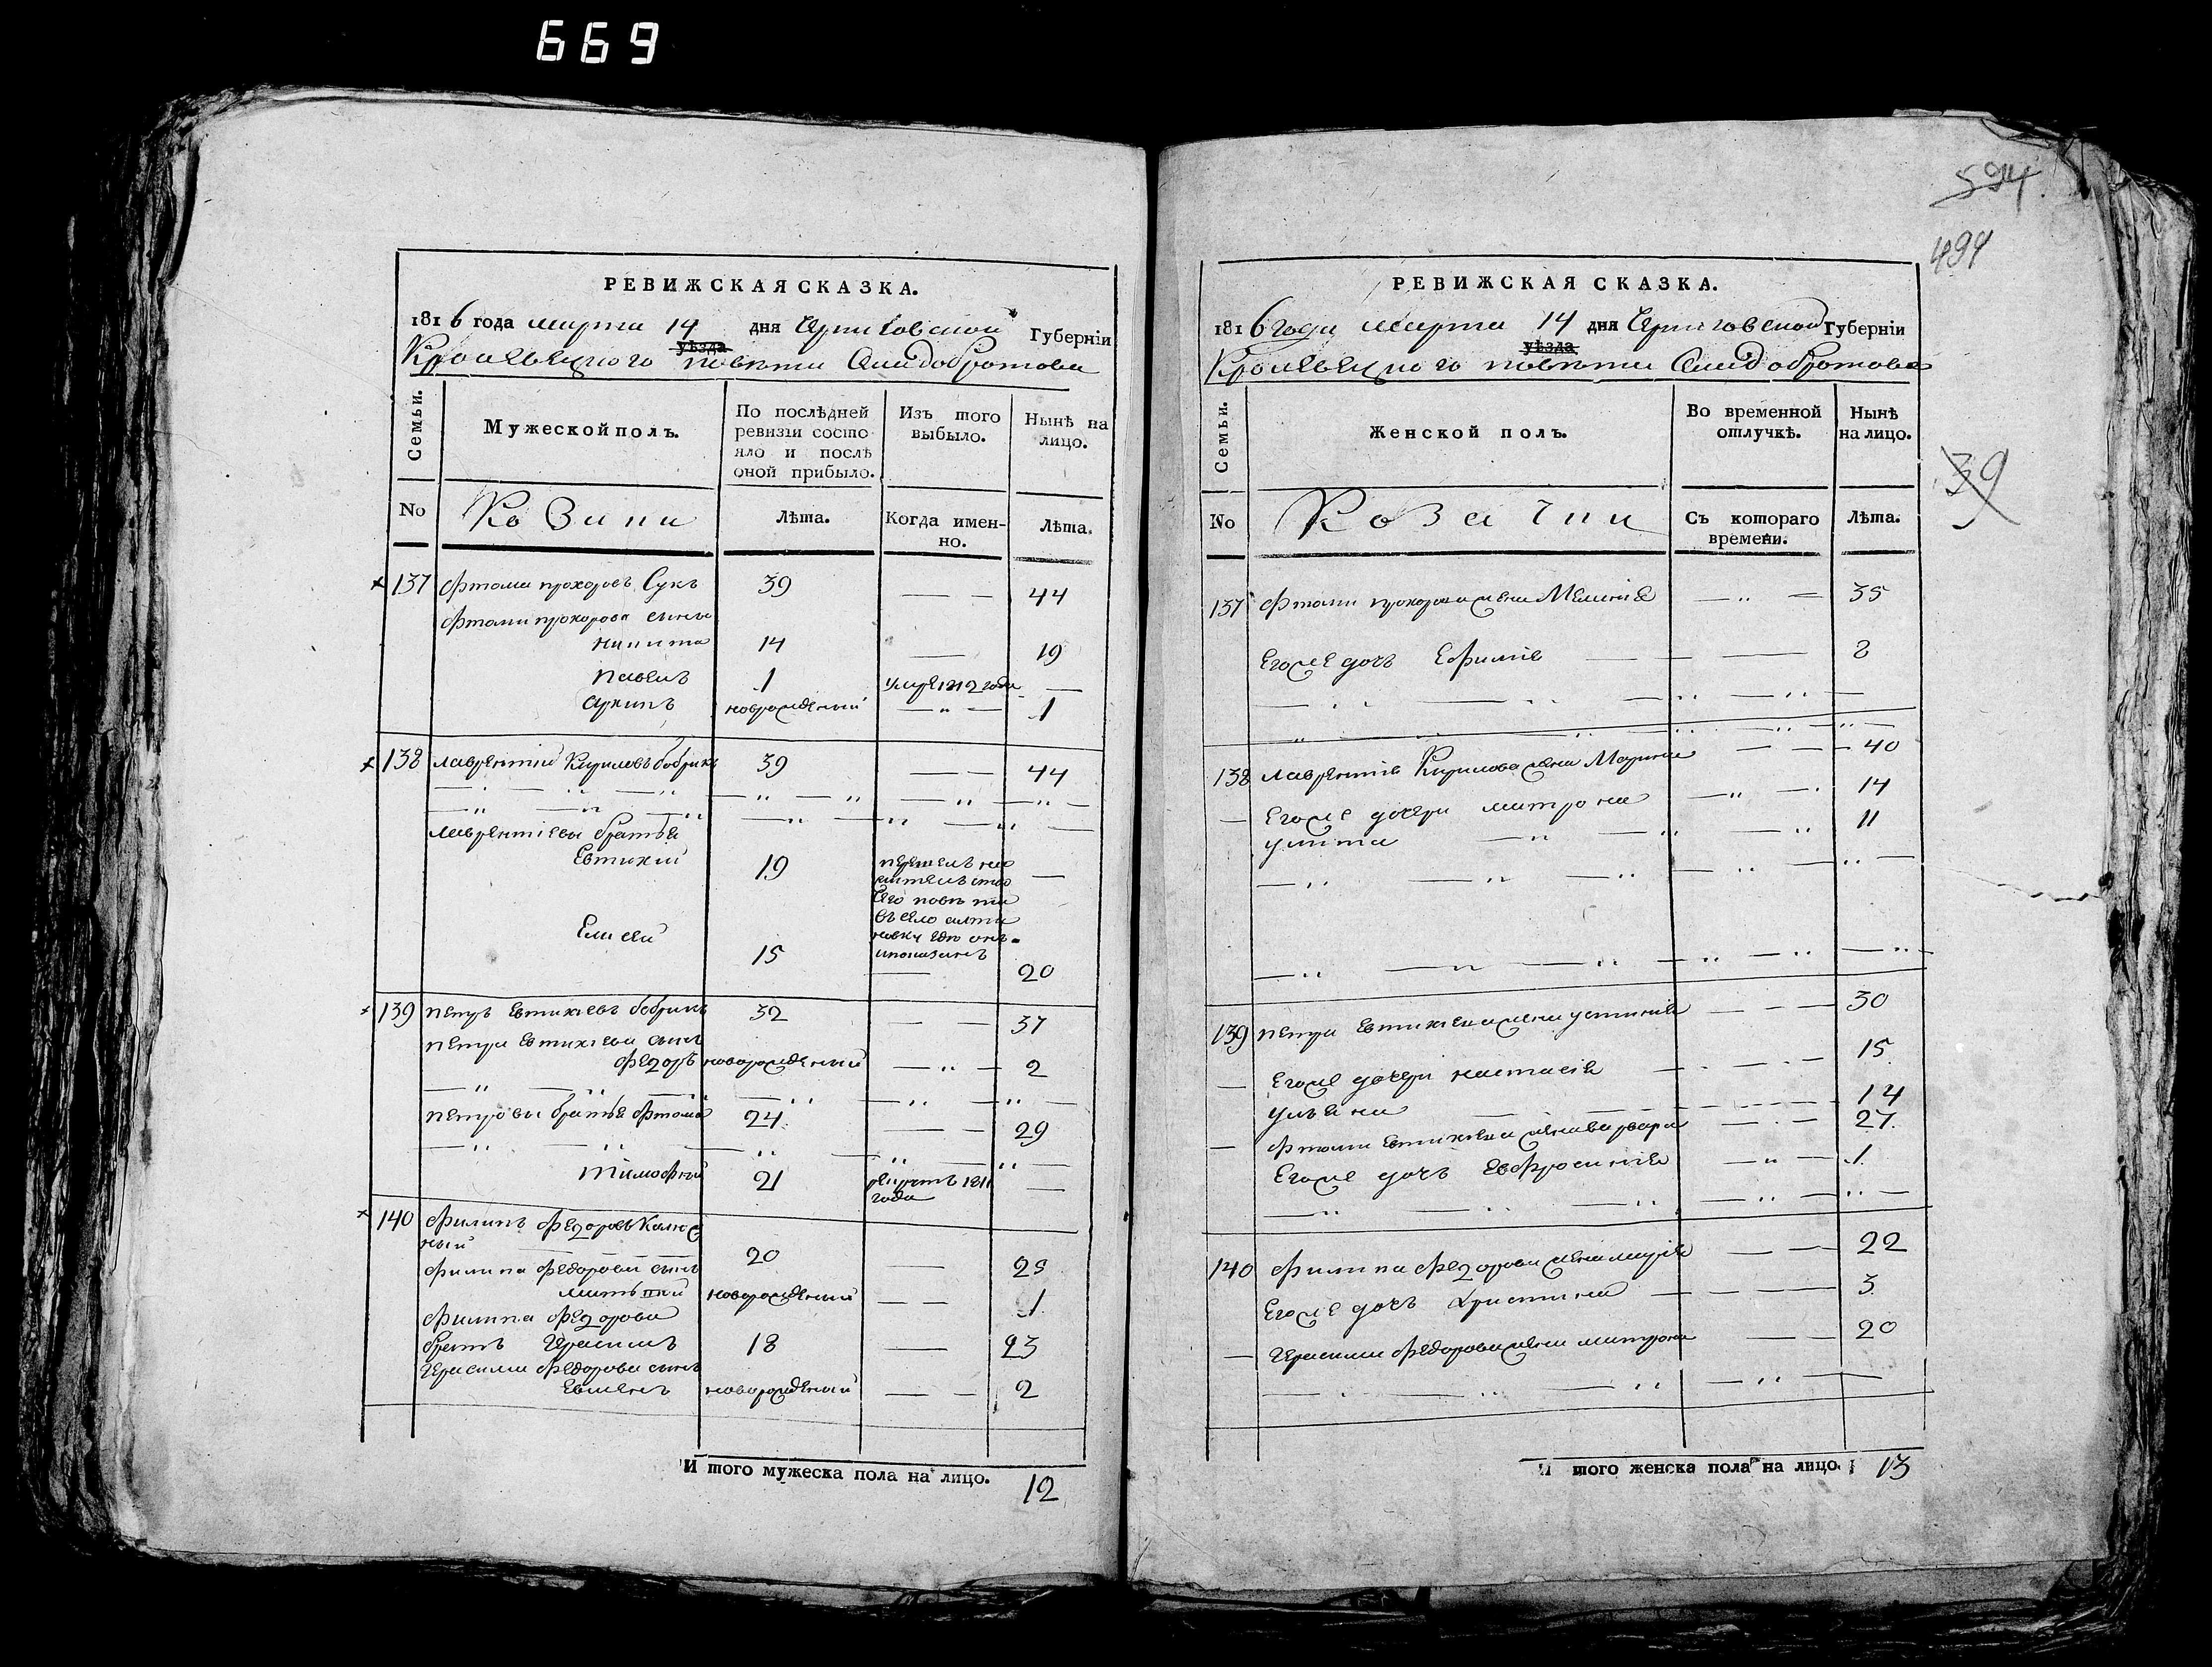 669
РЕВИЖСКАЯ СКАЗКА.
1816 года марта 14 дня Черниговской Губерніи
уѣзда
Кролевецкого повѣта Села Добротова
Семьи.
Мужеской полъ.
По послѣдней ревизіи состояло и послѣ оной прибыло.
Изъ того выбыло.
Нынѣ на лицо.
No
Козаки
Лѣта.
Когда именно.
Лѣта.
137 Фтома прохоровъ Сукъ 39 44
Фтоми прохорова сыны
никита 14 19
павелъ 1 умре 1812 года
архипъ новорожденый 1
138 лаврентій Кириловъ бобрикъ 39 44
лаврентіевы братья
Евтихій 19 перешелъ на
жителство
сего повѣта
въ село алти
новку где онъ
и показанъ
Елисей 15 20
139 петръ Евтихіевъ бобрикъ 32 37
петра Евтихіева сынъ
Федоръ новорожденый 2
петровы братья Фтома 24 29
Тимофей 21 рекрутъ 1811
года
140 Филипъ Федоровъ Калюж
ный 20 25
Филипа Федорова сынъ
новорожденый 1
Филипа Федорова
братъ Герасимъ 18 23
Герасима Федорова сынъ
Евменъ новорожденый 2
И того мужеска пола на лицо. 12
594
494
39
РЕВИЖСКАЯ СКАЗКА.
1816 года марта 14 дня Черниговской Губерніи
уѣзда
Кролевецкого повѣта Села Добротова
Семьи.
Женской полъ.
Во временной отлучкѣ.
Нынѣ на лицо.
No
Козачки
Съ котораго времени.
Лѣта.
137 Фтоми прохорова жена Меланія 35
Его же дочь Ефимія 8
138 лаврентія Кирилова жена Марина 40
Его же дочери матрона 14
улита 11
139 петра Евтихіева жена устинія 30
Его же дочери настасія 15
ульяна 14
Фтоми Евтихіева жена варвара 27
Его же дочь Евфросинія 1
140 Филипа Федорова жена марія 22
Его же дочь Христина 3
Герасима Федорова жена матрона 20
И того женска пола на лицо. 13